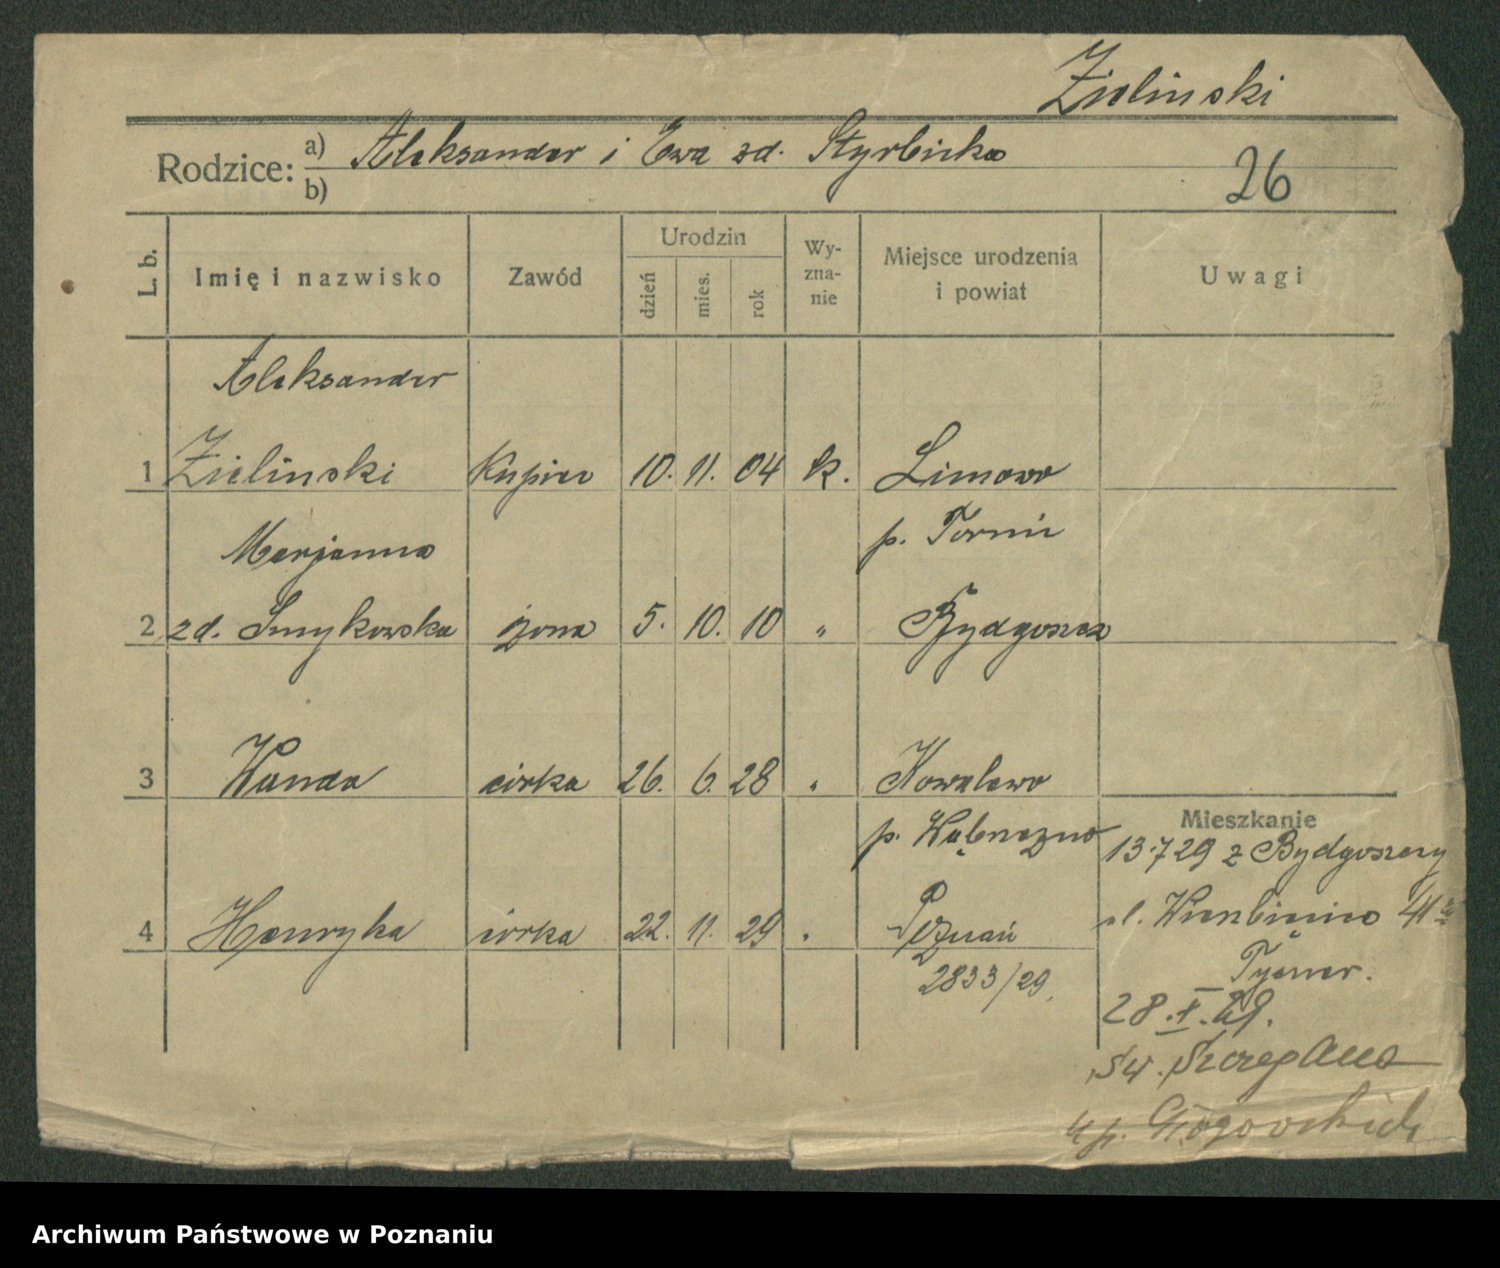 Zielinski
Rodzice: a) Aleksander i Ewa zd. Styrbicka
b)
26
L. b.
Imię i nazwisko
Zawód
Urodzin
dzień
mies.
rok
Wy-
zna-
nie
Miejsce urodzenia
i powiat
Uwagi
Aleksander
1 Zielinski Kupiec 10. 11. 04 k. Limowo
p. Toruń
Marjanna
2 zd. Smykowska żona 5. 10. 10 " Bydgoszcz
3 Wanda córka 26. 6. 28 " Kowalewo
p. Wąbrzezno
Mieszkanie
13.7 29 z Bydgoszczy
4 Henryka córka 22. 11. 29 " Poznań
2833/29.
ul. Wierzbięcice 41
28.X.29.
św. Szczepana
u p. Głogowskich
Archiwum Państwowe w Poznaniu